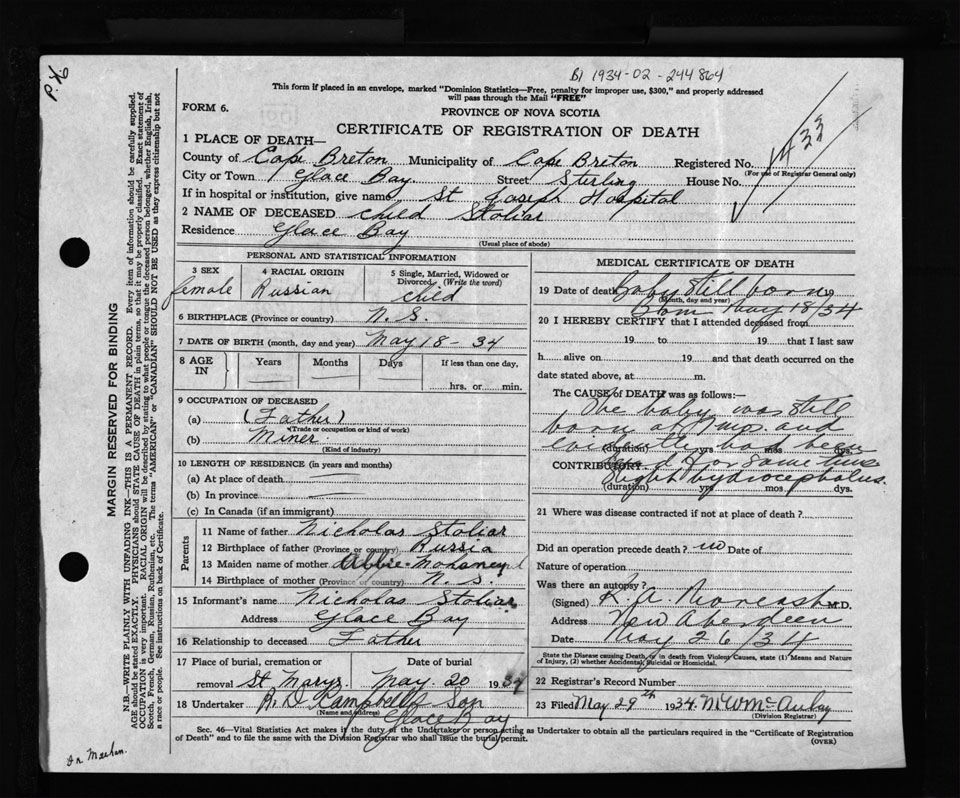 B1 1934-02-244864
This form if placed in an envelope, marked "Dominion Statistics—Free, penalty for improper use, $300," and properly addressed
will pass through the Mail "FREE"
FORM 6.
PROVINCE OF NOVA SCOTIA
CERTIFICATE OF REGISTRATION OF DEATH
1 PLACE OF DEATH—
County of Cape Breton Municipality of Cape Breton Registered No. 1433
(For use of Registrar General only)
City or Town Glace Bay. Street Sterling House No.
If in hospital or institution, give name St Joseph Hospital
2 NAME OF DECEASED child Stoliar
Residence Glace Bay
(Usual place of abode)
PERSONAL AND STATISTICAL INFORMATION
3 SEX female
4 RACIAL ORIGIN Russian
5 Single, Married, Widowed or Divorced. (Write the word) child
6 BIRTHPLACE (Province or country) N.S.
7 DATE OF BIRTH (month, day and year) May 18-34
8 AGE IN Years Months Days If less than one day,
hrs. or min.
9 OCCUPATION OF DECEASED
(a) (Father)
(Trade or occupation or kind of work)
(b) Miner.
(Kind of industry)
10 LENGTH OF RESIDENCE (in years and months)
(a) At place of death
(b) In province
(c) In Canada (if an immigrant)
Parents
11 Name of father Nicholas Stoliar
12 Birthplace of father (Province or country) Russia
13 Maiden name of mother
14 Birthplace of mother (Province of country) N.S.
15 Informant's name Nicholas Stoliar
Address Glace Bay
16 Relationship to deceased Father
17 Place of burial, cremation or removal St Marys. Date of burial May 20 1934
18 Undertaker R.D Campbell & Son
(Name and address) Glace Bay
MEDICAL CERTIFICATE OF DEATH
19 Date of death Baby still born 19
(Month, day and year) Born May 18/34
20 I HEREBY CERTIFY that I attended deceased from
19 to 19 that I last saw
h alive on 19 and that death occurred on the
date stated above, at m.
The CAUSE of DEATH was as follows:—
The baby was still
born at and
evidently had been
(duration) yrs mos dys.
CONTRIBUTORY dead for some time
Slight hydrocephalus.
(duration) yrs mos dys.
21 Where was disease contracted if not at place of death?
Did an operation precede death? no Date of
Nature of operation
Was there an autopsy?
(Signed) M.D.
Address New Aberdeen
Date May 26/34
State the Disease causing Death, or in death from Violent Causes, state (1) Means and Nature
of Injury, (2) whether Accidental, Suicidal or Homicidal.
22 Registrar's Record Number
23 Filed May 29th 1934.
(Division Registrar)
Sec. 46—Vital Statistics Act makes it the duty of the Undertaker or person acting as Undertaker to obtain all the particulars required in the "Certificate of Registration
of Death" and to file the same with the Division Registrar who shall issue the burial permit.
(OVER)
MARGIN RESERVED FOR BINDING
N.B.—WRITE PLAINLY WITH UNFADING INK—THIS IS A PERMANENT RECORD. Every item of information should be carefully supplied.
AGE should be stated EXACTLY. PHYSICIANS should STATE CAUSE OF DEATH in plain terms, so that it may be properly classified. Exact statement of
OCCUPATION is very important. RACIAL ORIGIN will be described by stating to what people or tongue the deceased person belonged, whether English, Irish,
Scotch, French, German, Russian, Ruthenian, etc. The terms "AMERICAN" or "CANADIAN" SHOULD NOT BE USED as they express citizenship but not
a race or people. See instructions on back of Certificate.